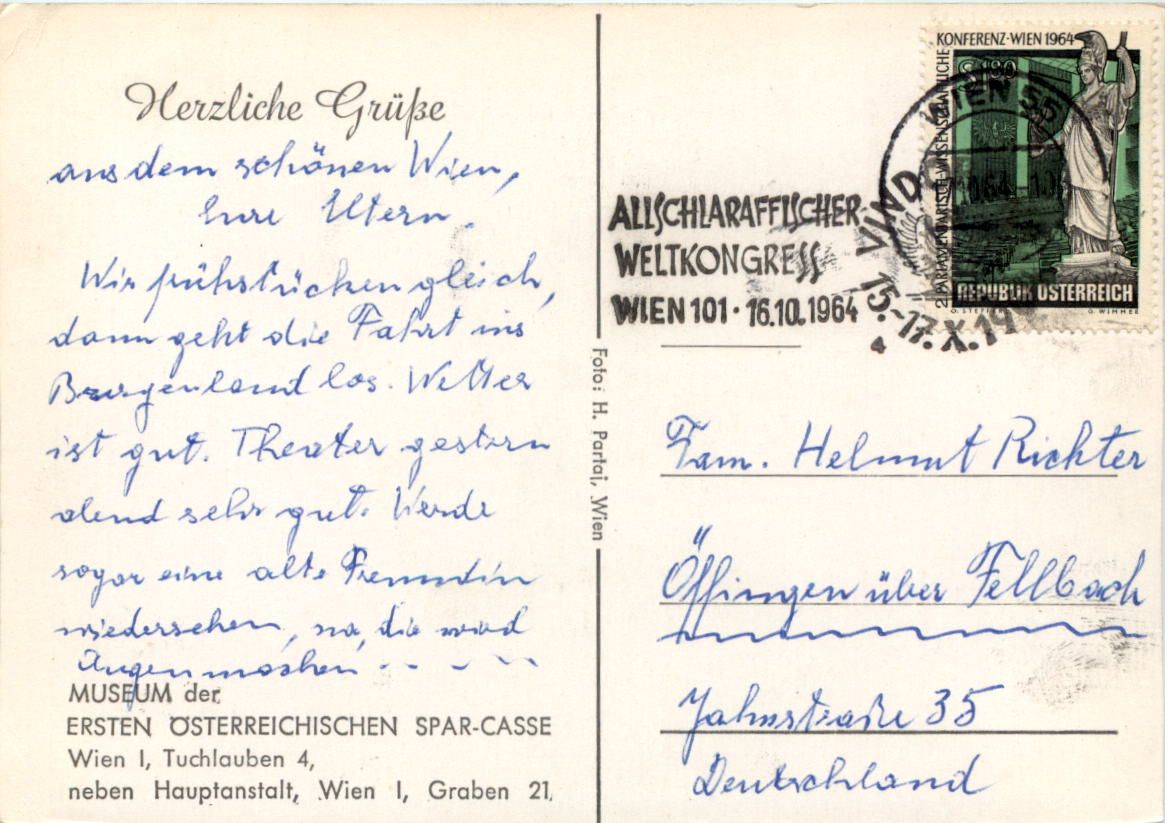 Herzliche Grüße
aus dem schönen Wien,
Eure Eltern.
Wir frühstücken gleich,
dann geht die Fahrt ins
Burgenland los. Wetter
ist gut. Theater gestern
abend sehr gut. Werde
sogar eine alte Freundin
wiedersehen, na, die wird
Augen machen
MUSEUM der
ERSTEN ÖSTERREICHISCHEN SPAR-CASSE
Wien I, Tuchlauben 4,
neben Hauptanstalt, Wien I, Graben 21,
Foto: H. Partaj, Wien
ALLSCHLARAFFISCHER
WELTKONGRESS
WIEN 101 · 16.10.1964
WIEN 55
VIND
15.-17.X.19
KONFERENZ-WIEN 1964
2. PARLAMENTARISCH-WISSENSCHAFTLICHE
S 1.80
REPUBLIK ÖSTERREICH
G. WIMMER
Fam. Helmut Richter
Öffingen über Fellbach
Jahnstraße 35
Deutschland